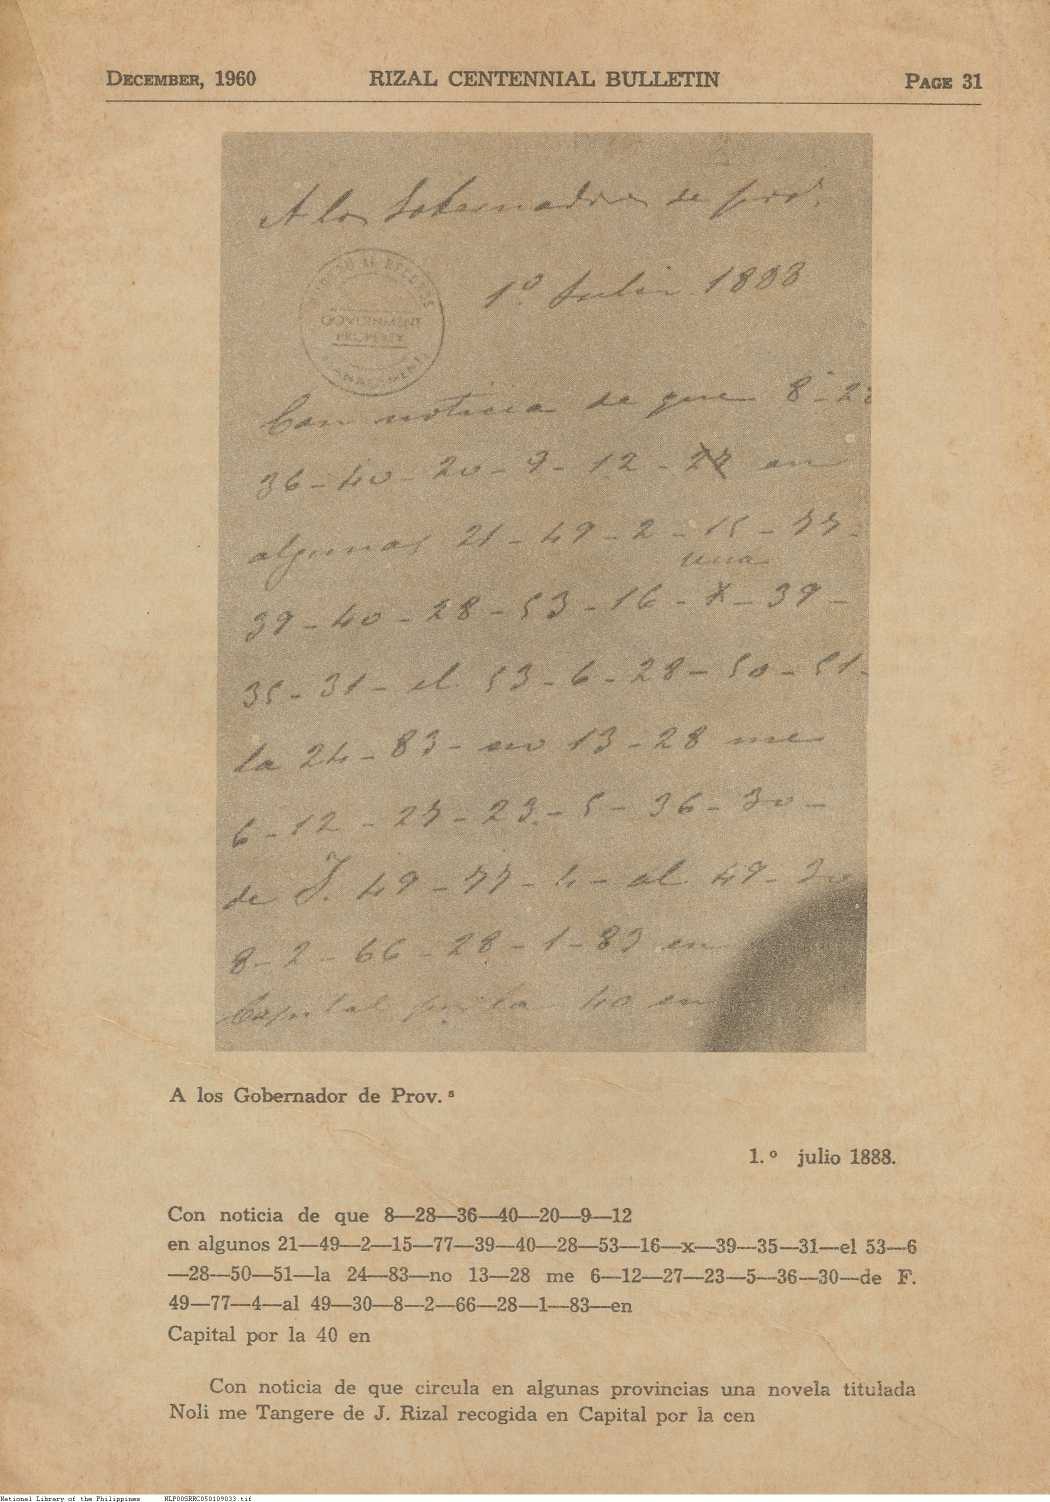 DECEMBER, 1960 RIZAL CENTENNIAL BULLETIN PAGE 31
A los Gobernadores de prov.s
1.º Julio 1888
GOVERNMENT
PROPERTY
Con noticia de que 8-28
36-40-20-9-12-27 en
algunas 21-49-2-15-77-
una
39-40-28-53-16-x-39-
35-31-el 53-6-28-50-51-
la 24-83-no 13-28 me
6-12-27-23-5-36-30-
de J. 49-77-4-al 49-30
8-2-66-28-1-83 en
Capital por la 40 en
A los Gobernador de Prov.s
1.º julio 1888.
Con noticia de que 8—28—36—40—20—9—12
en algunos 21—49—2—15—77—39—40—28—53—16—x—39—35—31—el 53—6
—28—50—51—la 24—83—no 13—28 me 6—12—27—23—5—36—30—de F.
49—77—4—al 49—30—8—2—66—28—1—83—en
Capital por la 40 en
Con noticia de que circula en algunas provincias una novela titulada
Noli me Tangere de J. Rizal recogida en Capital por la cen
National Library of the Philippines NLP00SRRC050109033.tif